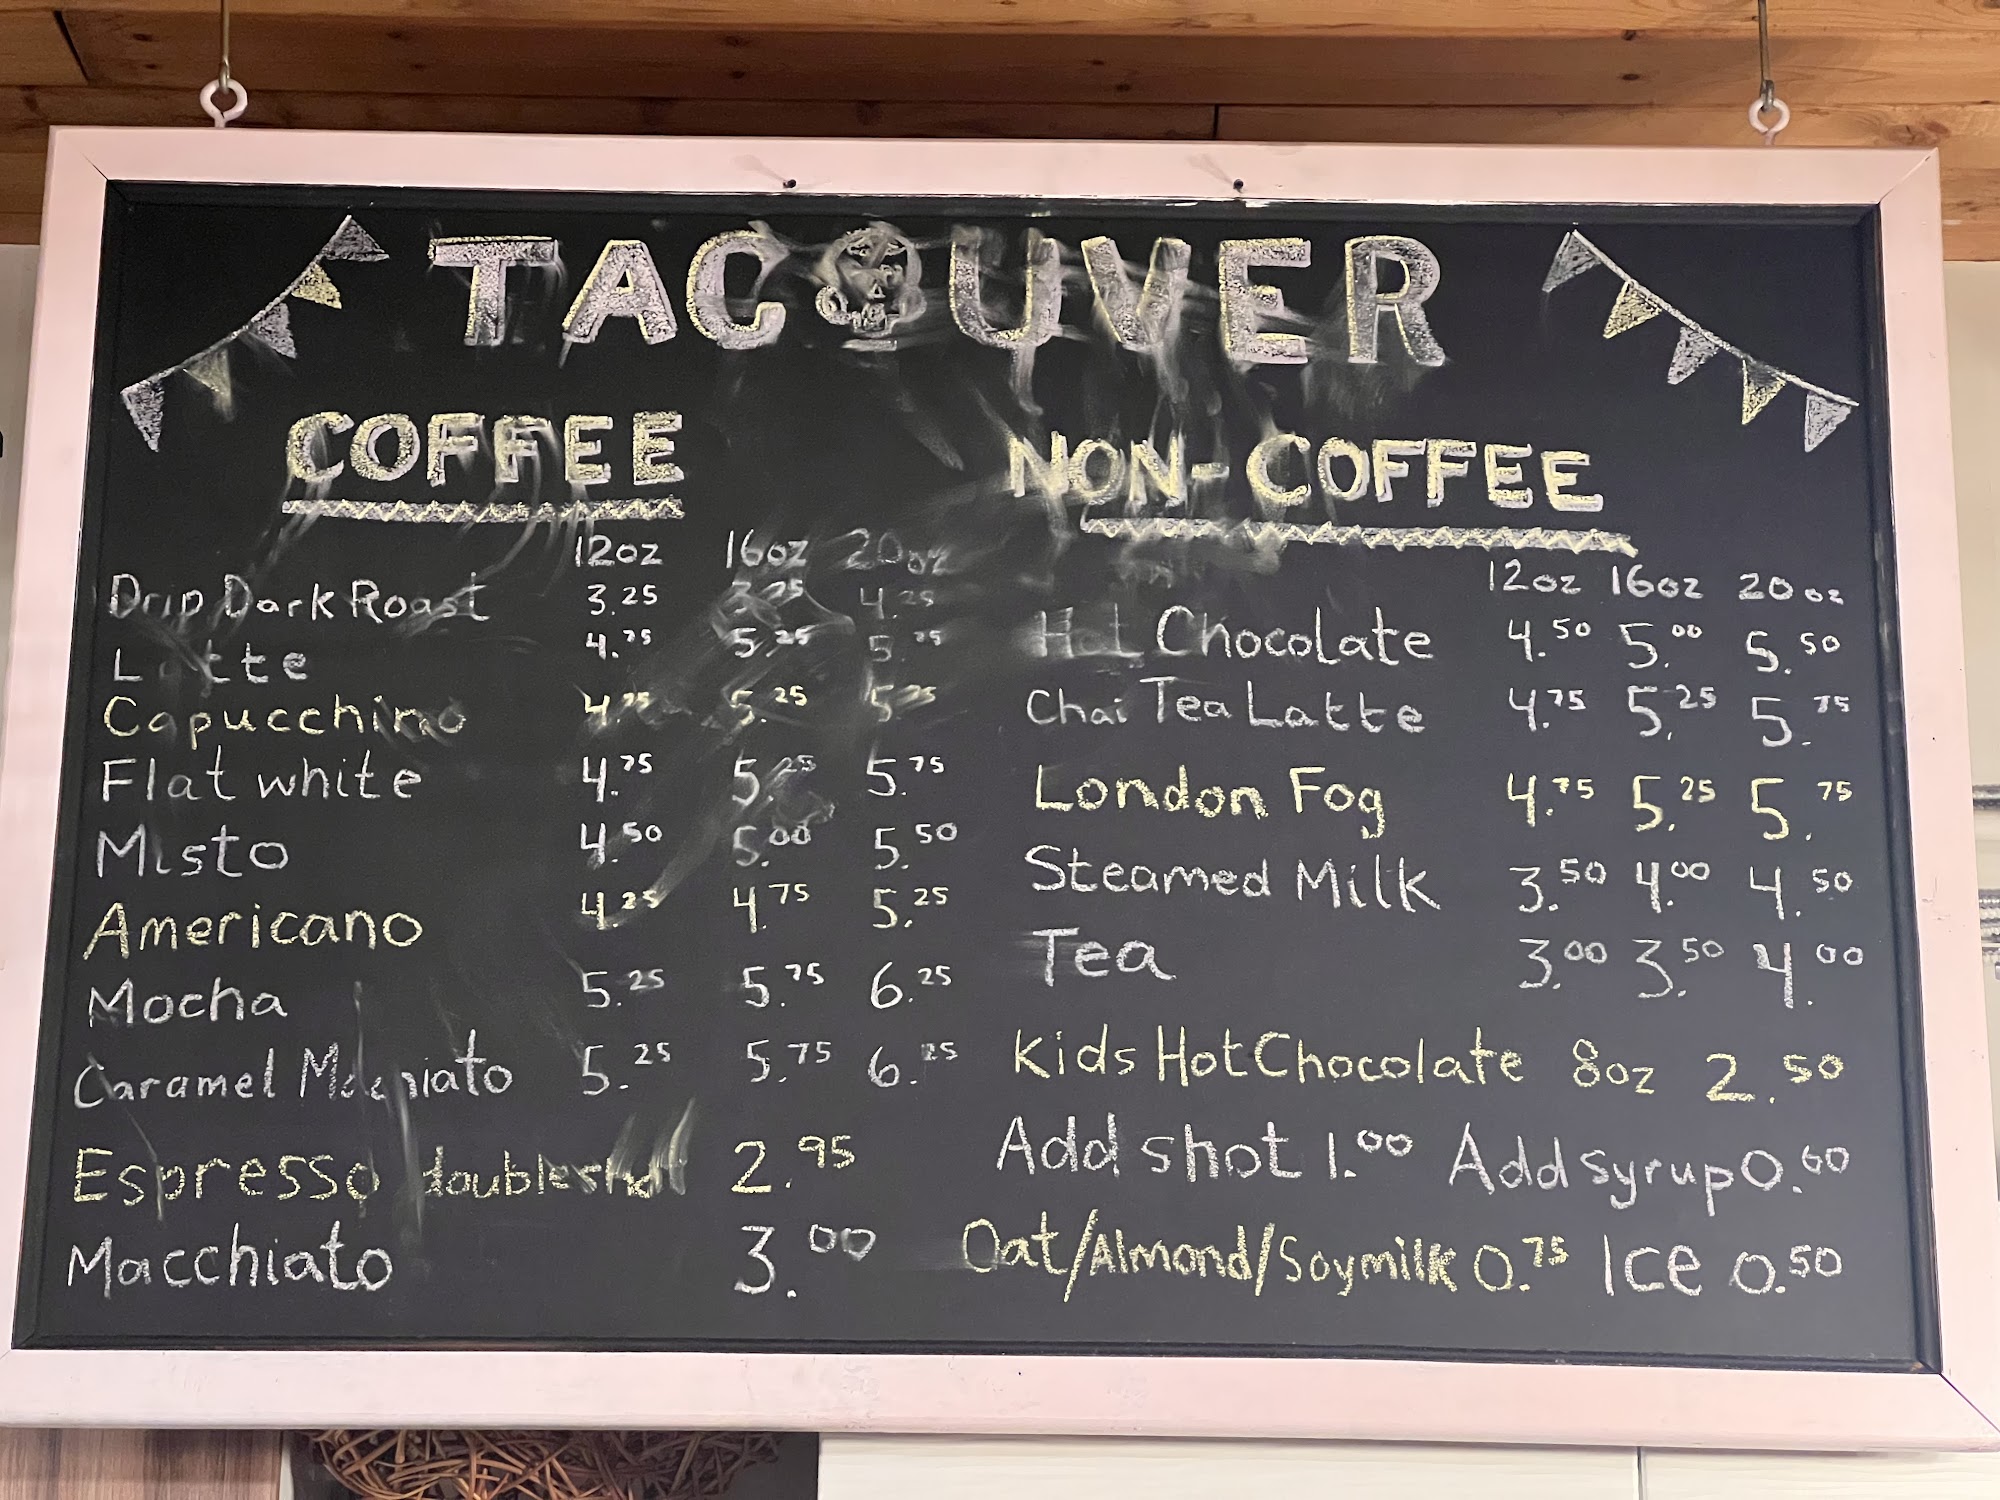 TACOUVER
COFFEE
12oz 16oz 20oz
Drip Dark Roast 3.25 3.75 4.25
Latte 4.75 5.25 5.75
Capucchino 4.75 5.25 5.75
Flat white 4.75 5.25 5.75
Misto 4.50 5.00 5.50
Americano 4.25 4.75 5.25
Mocha 5.25 5.75 6.25
Caramel Macchiato 5.25 5.75 6.25
Espresso double shot 2.95
Macchiato 3.00
NON-COFFEE
12oz 16oz 20oz
Hot Chocolate 4.50 5.00 5.50
Chai Tea Latte 4.75 5.25 5.75
London Fog 4.75 5.25 5.75
Steamed Milk 3.50 4.00 4.50
Tea 3.00 3.50 4.00
Kids Hot Chocolate 8oz 2.50
Add shot 1.00 Add syrup 0.60
Oat/Almond/Soymilk 0.75 Ice 0.50